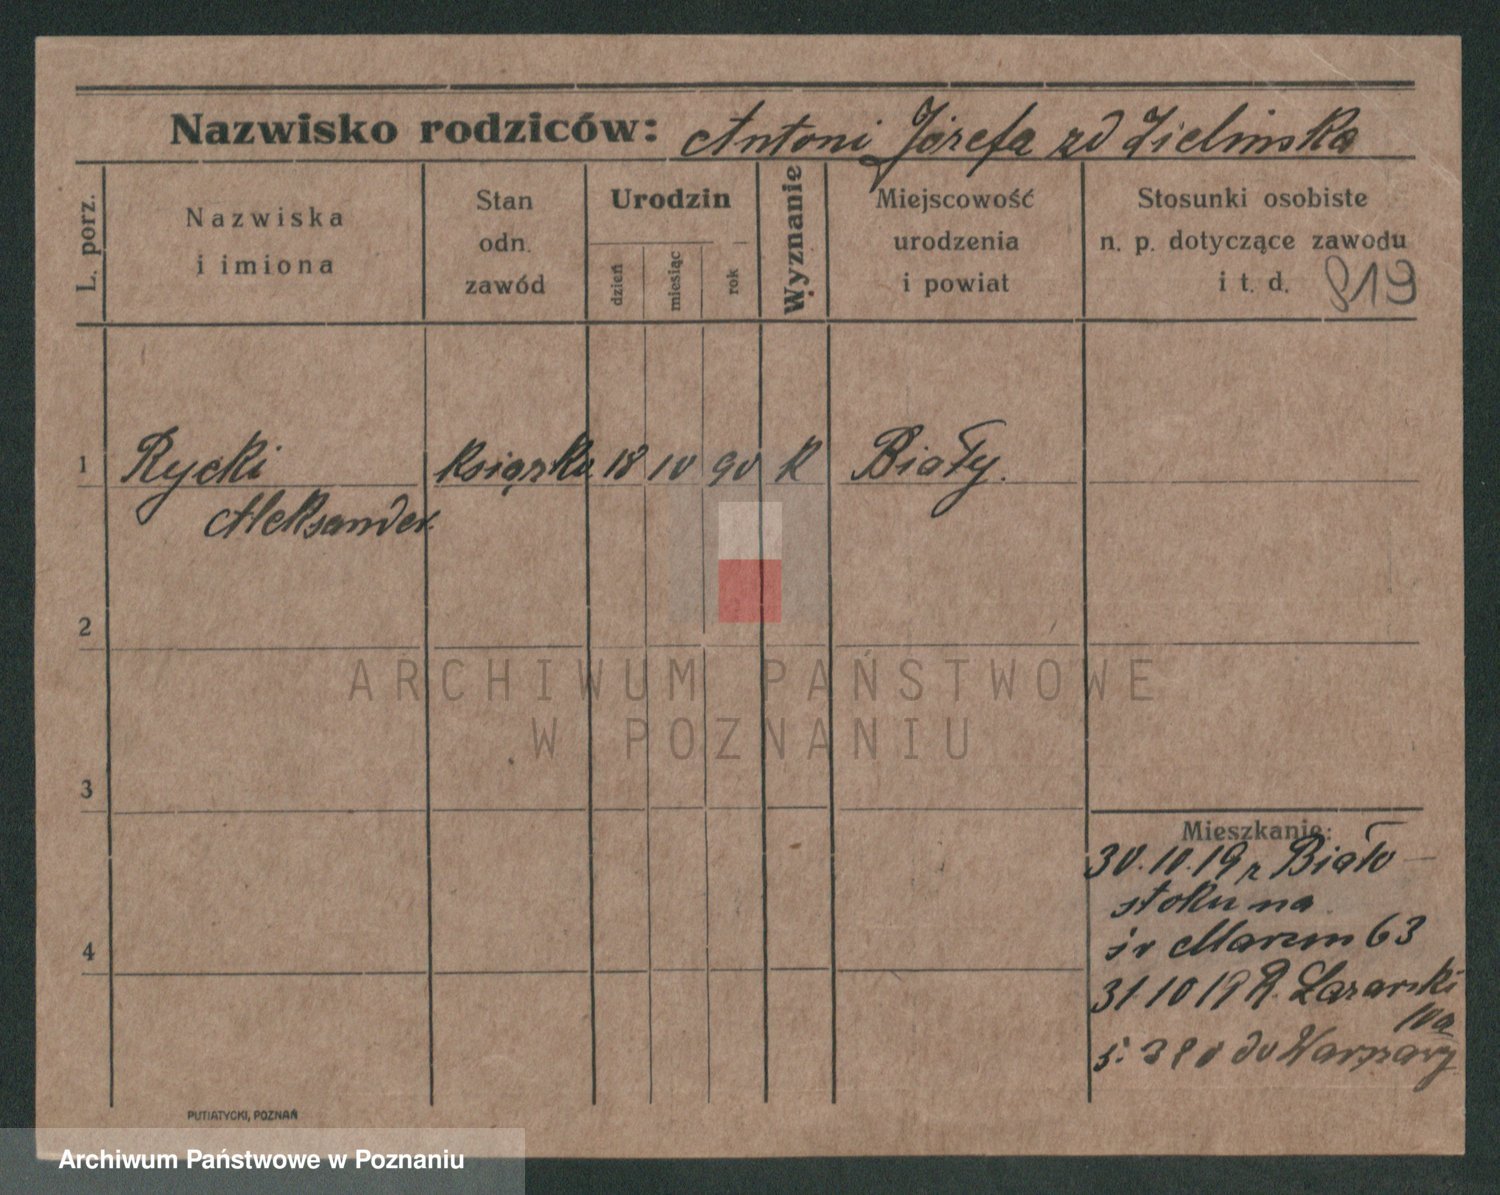 Nazwisko rodziców: Antoni Józefa zd Zielinska
L. porz.
Nazwiska
i imiona
Stan
odn.
zawód
Urodzin
dzień
miesiąc
rok
Wyznanie
Miejscowość
urodzenia
i powiat
Stosunki osobiste
n. p. dotyczące zawodu
i t. d.
819
1 Rycki ksiązka 18 10 90 k Biały.
Aleksander.
2
3
4
Mieszkanie:
30.10.19 z Biało
stoku na
śv Marcin 63
31 10 19 R. Lazarski
10a
do Warszawy
PUTIATYCKI, POZNAŃ
ARCHIWUM PAŃSTWOWE
W POZNANIU
Archiwum Państwowe w Poznaniu